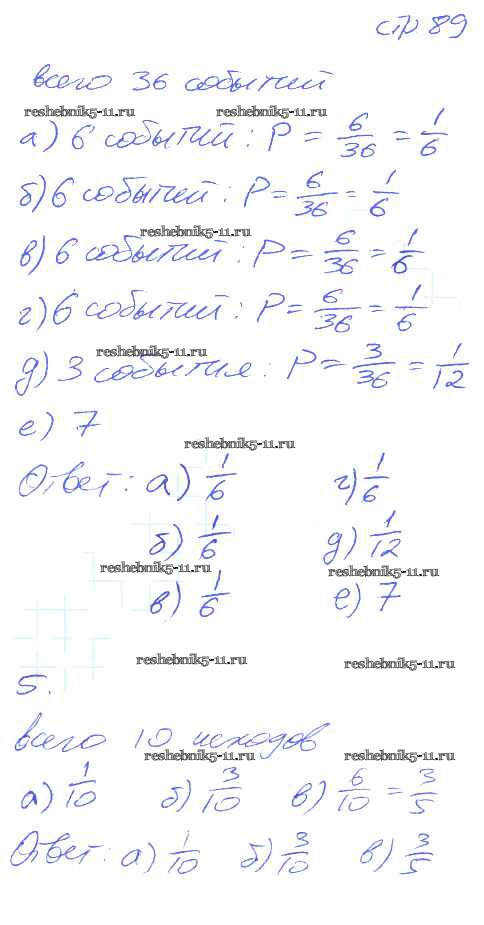 стр 89
всего 36 событий
reshebnik5-11.ru reshebnik5-11.ru
а) 6 событий : P = 6/36 = 1/6
б) 6 событий : P = 6/36 = 1/6
reshebnik5-11.ru
в) 6 событий : P = 6/36 = 1/6
г) 6 событий : P = 6/36 = 1/6
reshebnik5-11.ru
д) 3 события : P = 3/36 = 1/12
е) 7
reshebnik5-11.ru
Ответ : а) 1/6 г) 1/6
б) 1/6 д) 1/12
reshebnik5-11.ru reshebnik5-11.ru
в) 1/6 е) 7
reshebnik5-11.ru reshebnik5-11.ru
5.
всего 10 исходов
reshebnik5-11.ru reshebnik5-11.ru
а) 1/10 б) 3/10 в) 6/10 = 3/5
Ответ : а) 1/10 б) 3/10 в) 3/5